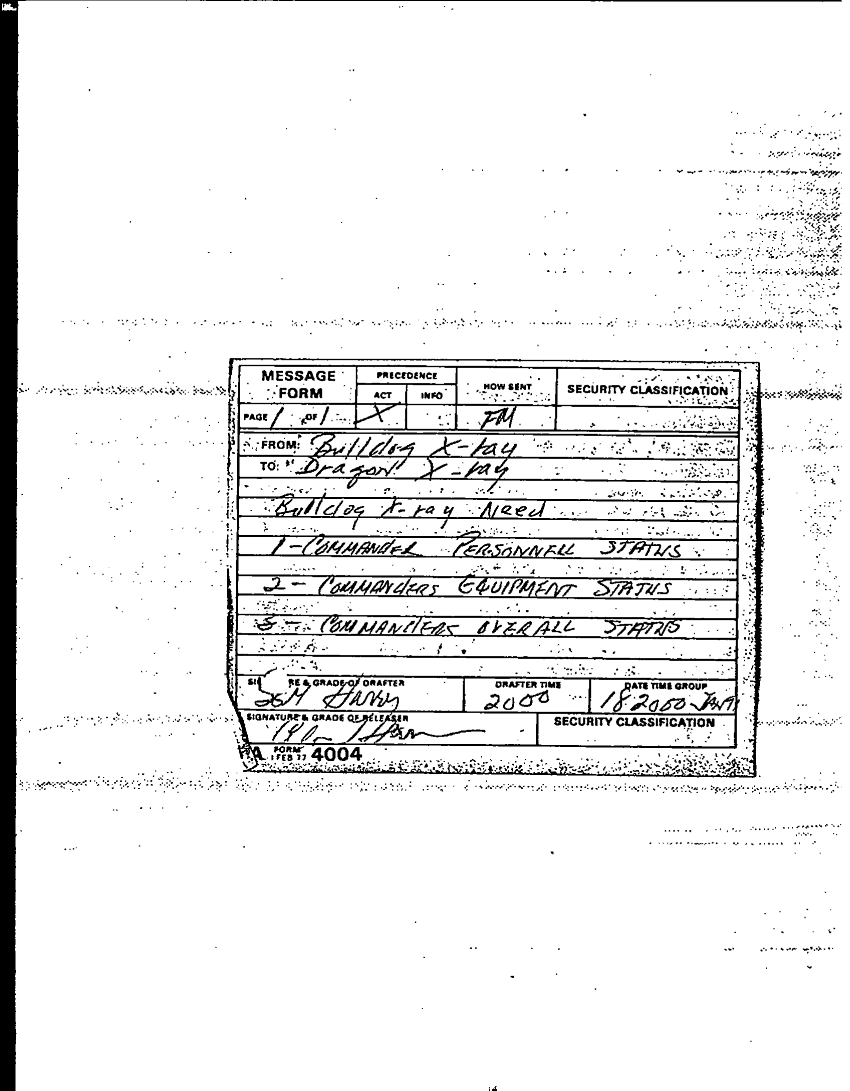 MESSAGE FORM PRECEDENCE HOW SENT SECURITY CLASSIFICATION
ACT INFO
PAGE 1 OF 1 X FM
FROM: Bulldog X-ray
TO: Dragon X-ray
Bulldog X-ray Need
1-COMMANDER PERSONNELL STATUS
2- COMMANDERS EQUIPMENT STATUS
3- COMMANDERS OVERALL STATUS
RE & GRADE OF DRAFTER DRAFTER TIME DATE TIME GROUP
2000 182000 JAN91
SIGNATURE & GRADE OF RELEASER SECURITY CLASSIFICATION
A FORM 1 FEB 77 4004